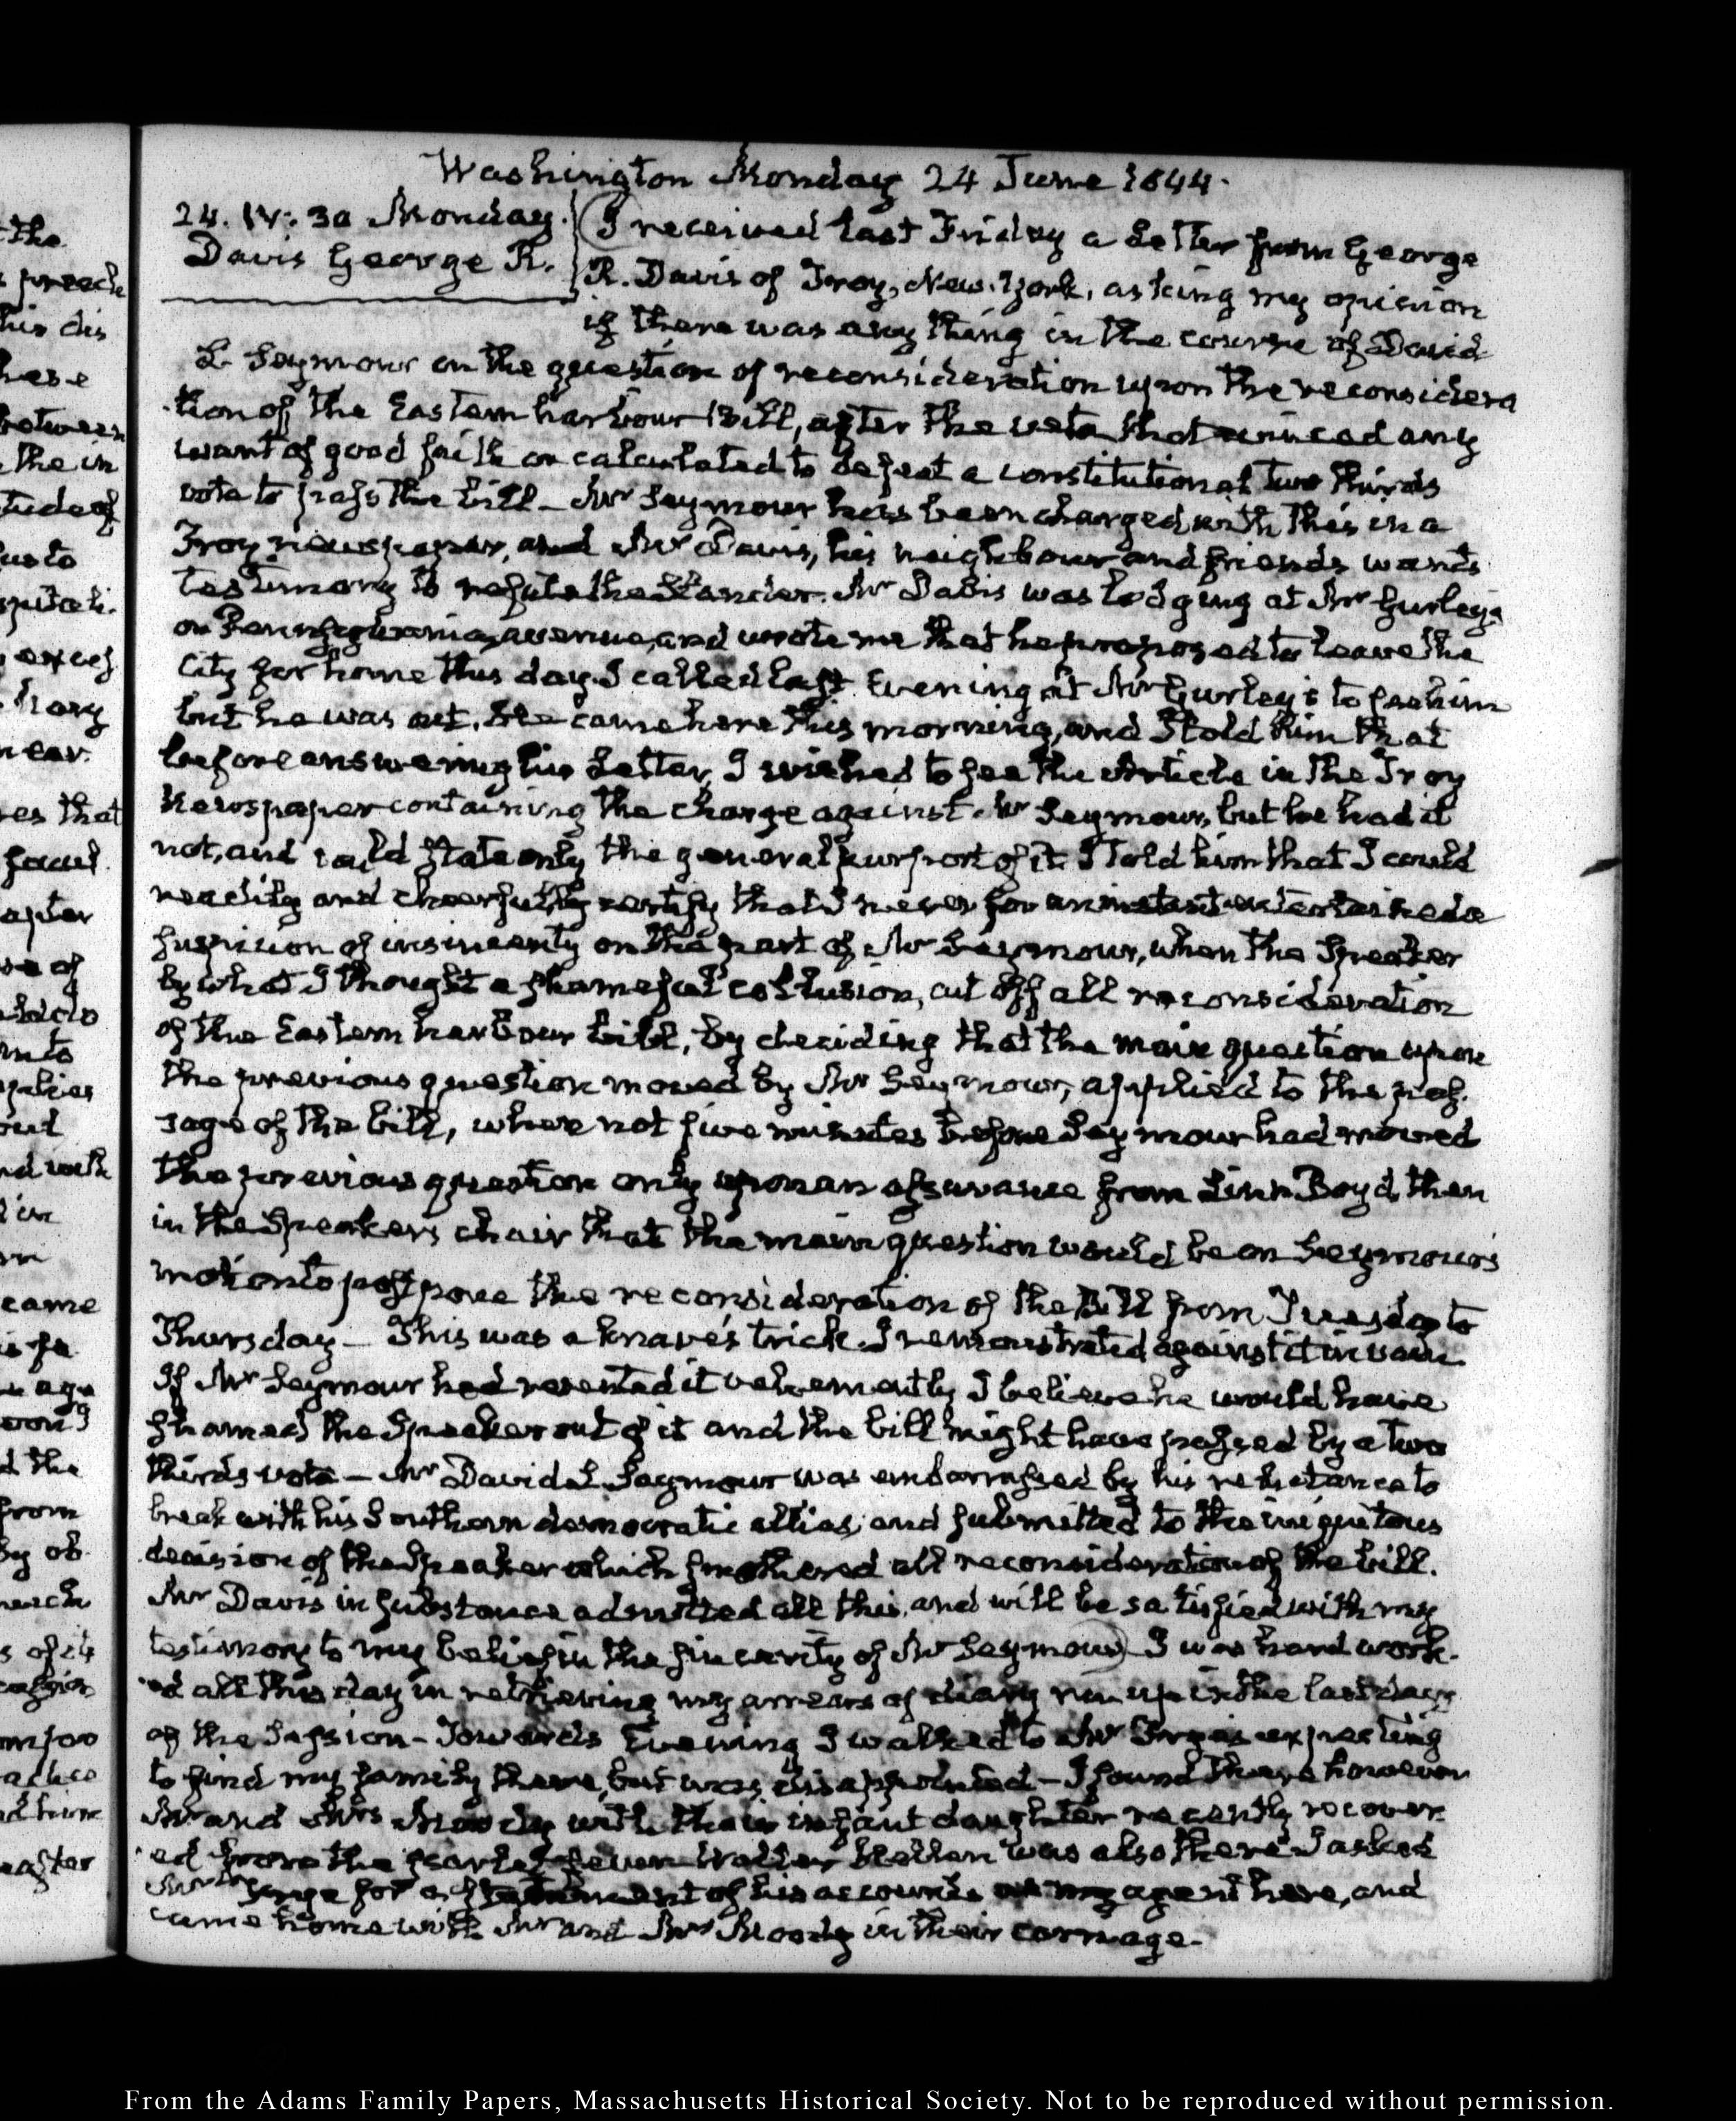 Washington Monday 24 June 1844.
24. IV: 30 Monday.
Davis George R.
I received last Friday a Letter from George
R. Davis of Troy, New-York, asking my opinion
if there was any thing in the course of David
L Seymour on the question of reconsideration upon the reconsidera
tion of the Eastern harbour Bill, after the veto that evinced any
want of good faith or calculated to defeat a constitutional two thirds
vote to pass the bill — Mr Seymour has been charged with this in a
Troy newspaper, and Mr Davis, his neighbour and friends wants
testimony to refute the Slander. Mr Davis was lodging at Mr Gurley's
on Pennsylvania avenue, and wrote me that he proposed to leave the
City for home this day. I called last Evening at Mr Gurley's to see him
but he was out. He came here this morning, and I told him that
before answering his Letter, I wished to see the Article in the Troy
Newspaper containing the charge against Mr Seymour, but he had it
not, and could state only the general purport of it. I told him that I could
readily and cheerfully certify that I never for an instant entertained a
suspicion of insincerity on the part of Mr Seymour, when the Speaker
by what I thought a shameful collusion, cut off all reconsideration
of the Eastern harbour bill, by deciding that the main question upon
the previous question moved by Mr Seymour, applied to the pas-
sage of the bill, when not five minutes before Seymour had moved
the previous question only upon an assurance from Linn Boyd, then
in the Speakers chair that the main question would be on Seymour's
motion to postpone the reconsideration of the Bill from Tuesday to
Thursday — This was a knave's trick. I remonstrated against it in vain.
If Mr Seymour had resented it vehemently I believe he would have
shamed the Speaker out of it and the bill might have passed by a two
thirds vote — Mr David L Seymour was embarrassed by his reluctance to
break with his Southern democratic allies, and submitted to the iniquitous
decision of the Speaker which smothered all reconsideration of the bill.
Mr Davis in substance admitted all this, and will be satisfied with my
testimony to my belief in the sincerity of Mr Seymour) I was hard work-
ed all this day in retrieving my arrears of diary run up in the last days
of the Session — Towards Evening I walked to Mr Frye's expecting
to find my family there, but was disappointed — I found there however
Mr and Mrs Moody with their infant daughter recently recover-
ed from the scarlet fever Walter Hellen was also there I asked
Mr Frye for a of his accounts as my agent here, and
came home with Mr and Mrs Moody in their carriage.
From the Adams Family Papers, Massachusetts Historical Society. Not to be reproduced without permission.